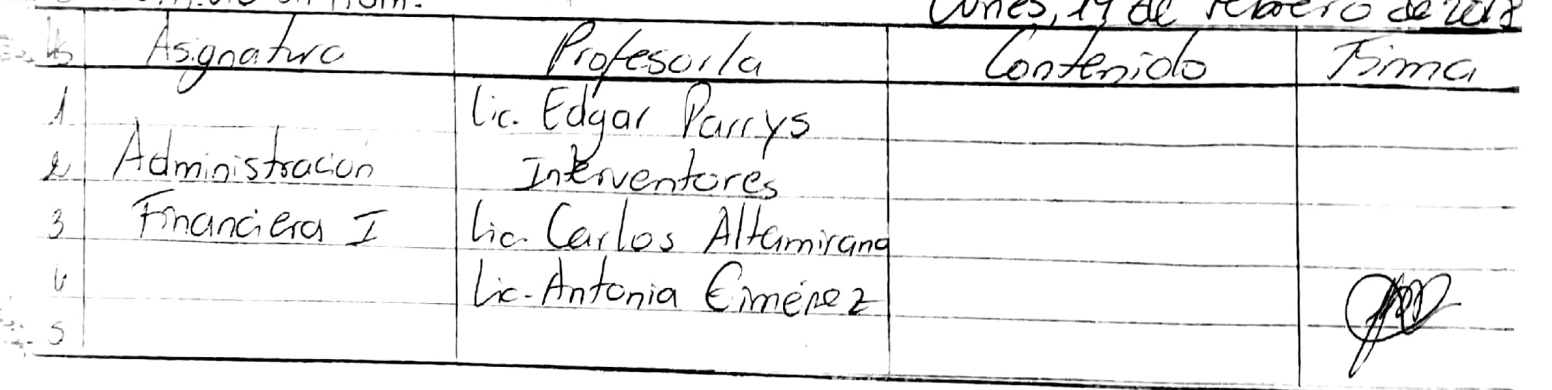 Lunes, 19 de Febrero de 2018
Hs Asignatura Profesor/a Contenido Firma
1 Lic. Edgar Parrys
2 Administración Interventores
3 Financiera I Lic. Carlos Altamirano
4 Lic. Antonia Giménez
5